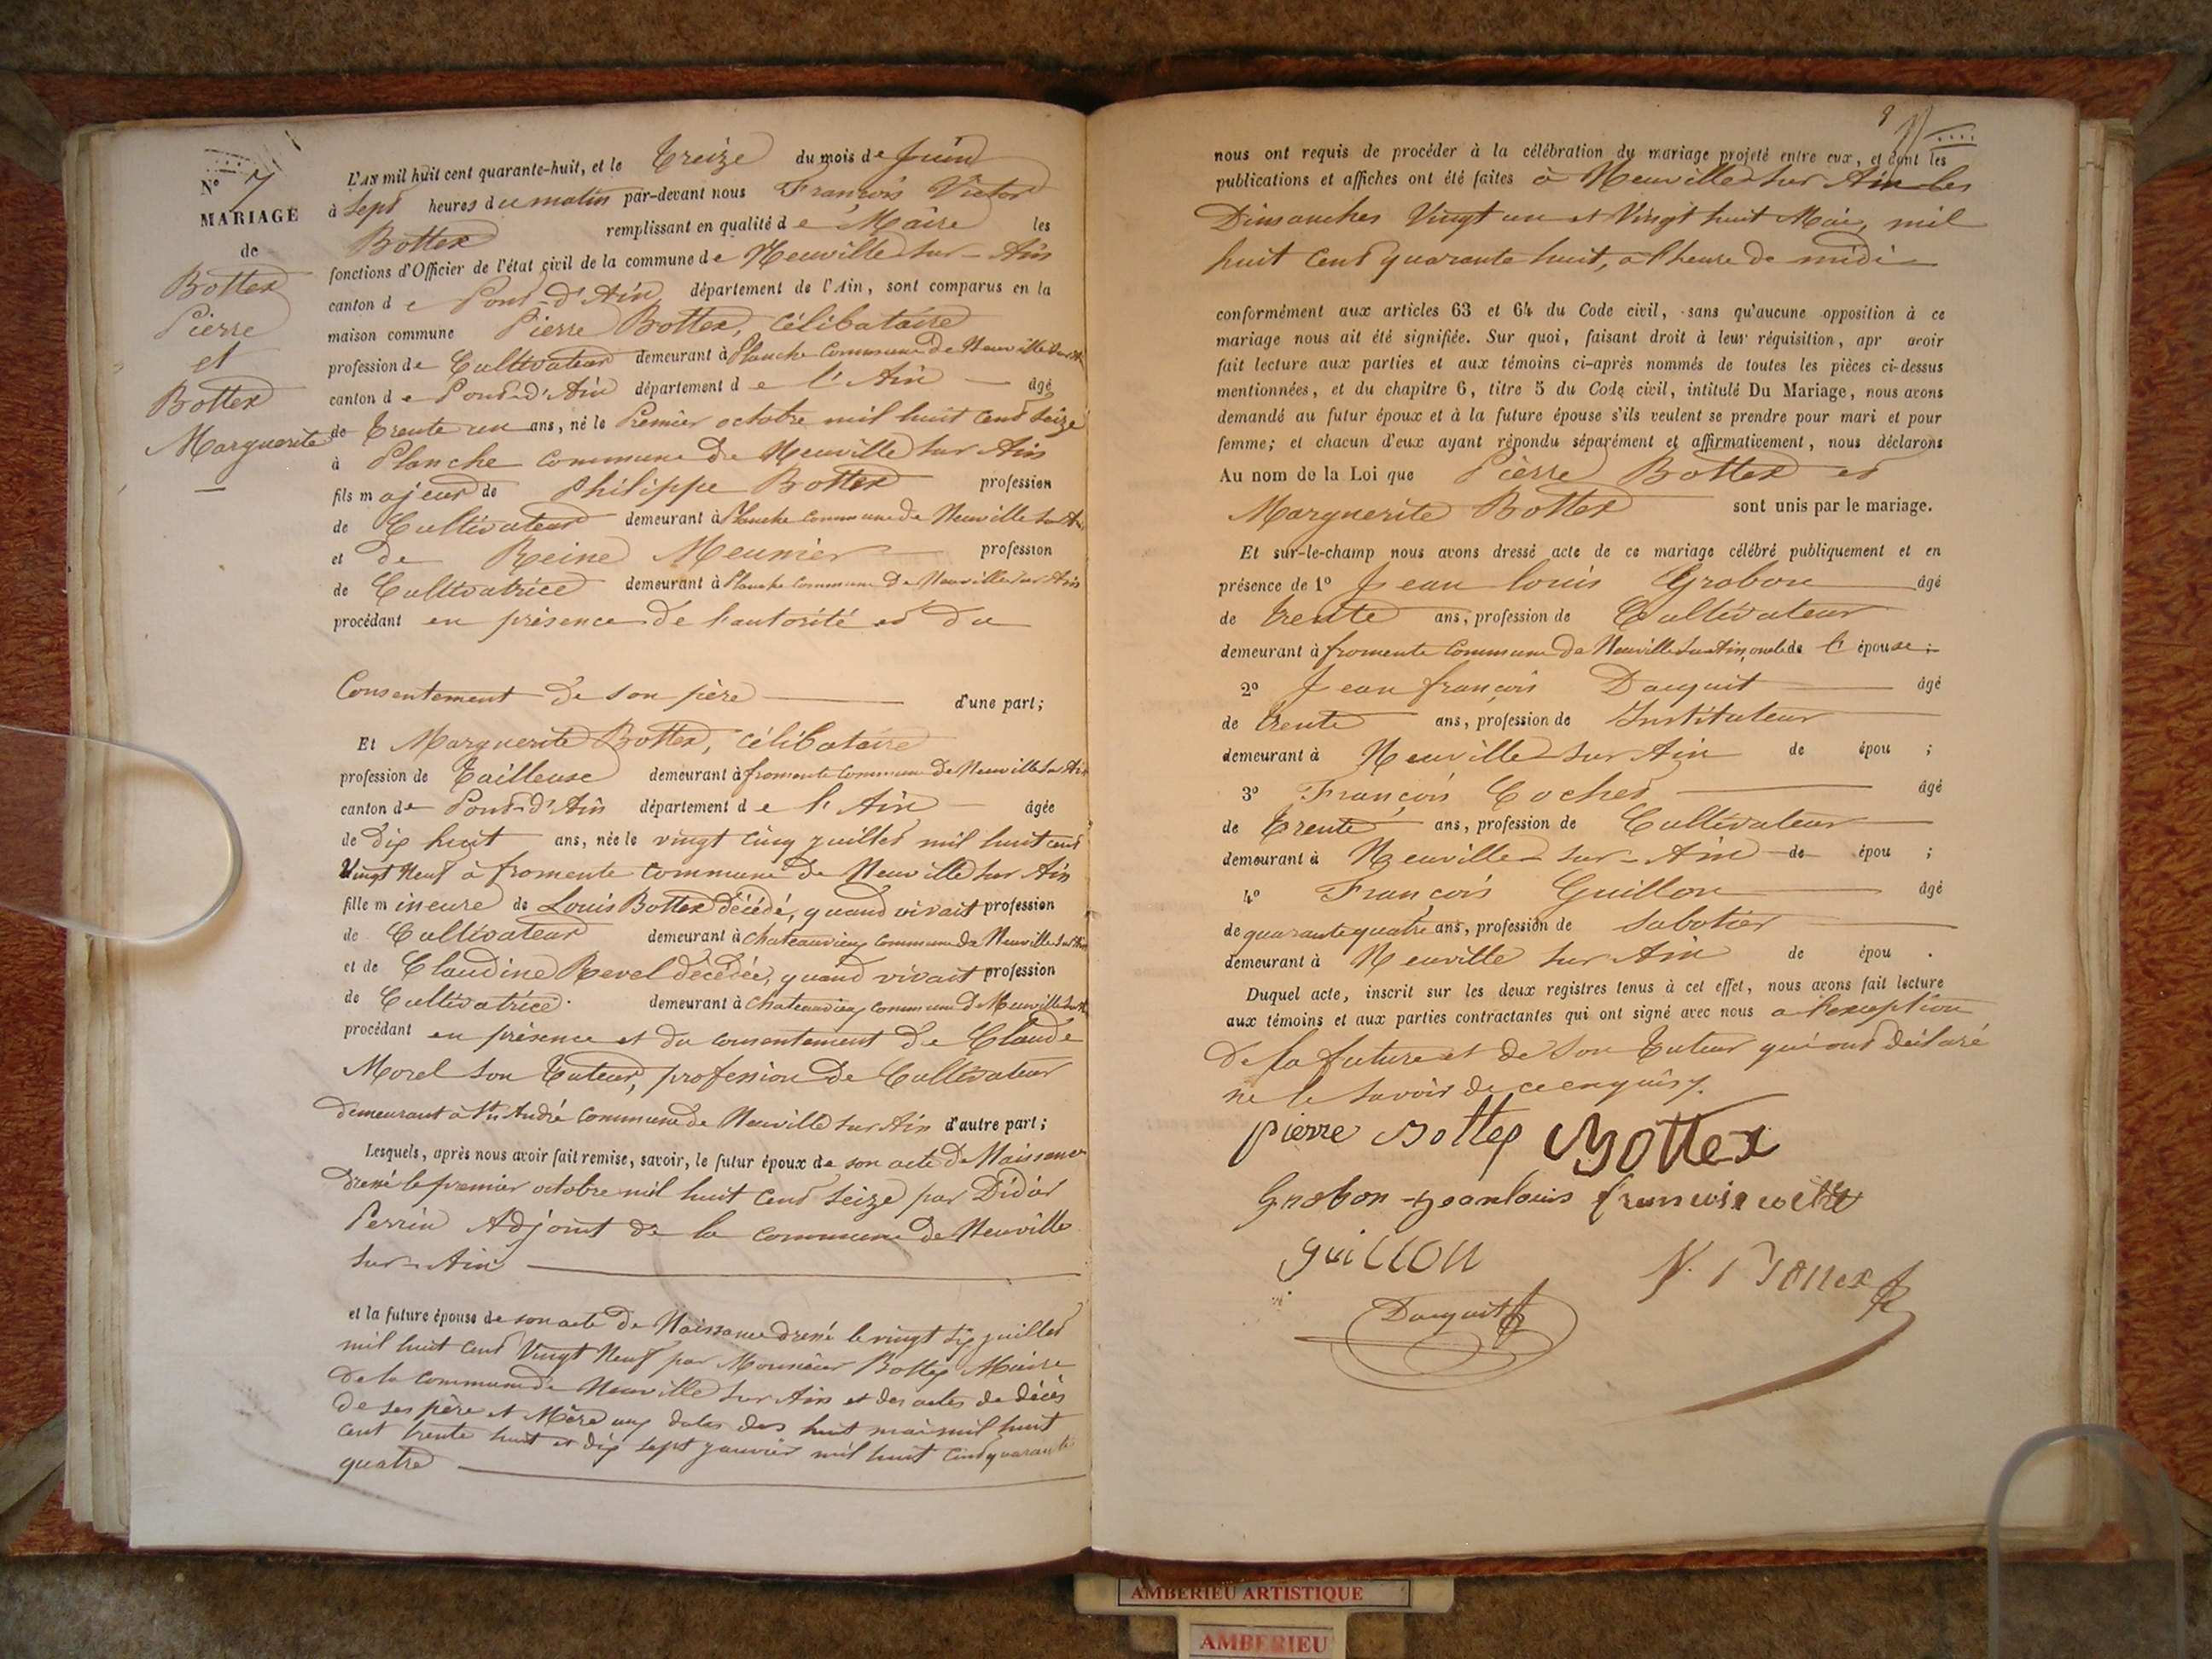 N° 7
MARIAGE
de
Bottex
Pierre
et
Bottex
Marguerite
L'AN mil huit cent quarante-huit, et le Treize du mois de Juin
à Sept heures du matin par-devant nous François Victor
Bottex remplissant en qualité de Maire les
fonctions d'Officier de l'état civil de la commune de Neuville sur-Ain
canton de Pont-d'Ain département de l'Ain, sont comparus en la
maison commune Pierre Bottex, Célibataire
profession de Cultivateur demeurant à Planche Commune de Neuville sur Ain
canton de Pont-d'Ain département de l'Ain âgé
de Trente un ans, né le Premier octobre mil huit cent Seize
à Planche Commune de Neuville sur Ain
fils majeur de Philippe Bottex profession
de Cultivateur demeurant à Planche Commune de Neuville sur Ain
et de Reine Meunier profession
de Cultivatrice demeurant à Planche Commune de Neuville sur Ain
procédant en présence de l'autorité et du
Consentement de son père d'une part;
Et Marguerite Bottex, célibataire
profession de Tailleuse demeurant à fromente Commune de Neuville sur Ain
canton de Pont-d'Ain département de l'Ain âgée
de dix huit ans, née le vingt cinq juillet mil huit cent
Vingt Neuf à fromente Commune de Neuville sur Ain
fille mineure de Louis Bottex décédé, quand vivait profession
de Cultivateur demeurant à Chateauvieux Commune de Neuville sur Ain
et de Claudine Revel décédée, quand vivait profession
de Cultivatrice demeurant à Chateauvieux Commune de Neuville sur Ain
procédant en présence et du consentement de Claude
Morel son Tuteur, profession de Cultivateur
demeurant à St André Commune de Neuville sur Ain d'autre part;
Lesquels, après nous avoir fait remise, savoir, le futur époux de son acte de Naissance
dressé le premier octobre mil huit Cent Seize par Didier
Perrin Adjoint de la Commune de Neuville
sur-Ain
et la future épouse de son acte de Naissance dressé le vingt six juillet
mil huit Cent Vingt Neuf par Monsieur Bottex Maire
de la Commune de Neuville sur Ain et des actes de décès
de ses père et Mère aux dates des huit mai mil huit
cent trente huit et dix sept janvier mil huit Cent quarante
quatre
nous ont requis de procéder à la célébration du mariage projeté entre eux, et dont les
publications et affiches ont été faites à Neuville sur Ain les
Dimanches Vingt un et Vingt huit Mai, mil
huit Cent quarante huit, à l'heure de midi
conformément aux articles 63 et 64 du Code civil, sans qu'aucune opposition à ce
mariage nous ait été signifiée. Sur quoi, faisant droit à leur réquisition, apr avoir
fait lecture aux parties et aux témoins ci-après nommés de toutes les pièces ci-dessus
mentionnées, et du chapitre 6, titre 5 du Code civil, intitulé Du Mariage, nous avons
demandé au futur époux et à la future épouse s'ils veulent se prendre pour mari et pour
femme; et chacun d'eux ayant répondu séparément et affirmativement, nous déclarons
Au nom de la Loi que Pierre Bottex et
Marguerite Bottex sont unis par le mariage.
Et sur-le-champ nous avons dressé acte de ce mariage célébré publiquement et en
présence de 1° Jean louis Grobon âgé
de trente ans, profession de Cultivateur
demeurant à fromente Commune de Neuville sur Ain, oncle de l'épouse;
2° Jean françois Dacquit âgé
de trente ans, profession de Instituteur
demeurant à Neuville sur Ain de épou ;
3° François Cochet âgé
de Trente ans, profession de Cultivateur
demeurant à Neuville sur-Ain de épou ;
4° François Guillon âgé
de quarante quatre ans, profession de Sabotier
demeurant à Neuville sur Ain de épou .
Duquel acte, inscrit sur les deux registres tenus à cet effet, nous avons fait lecture
aux témoins et aux parties contractantes qui ont signé avec nous à l'exception
de la future et de son Tuteur qui ont déclaré
ne le savoir de ce enquis.
pierre Bottex Bottex
Grobon jeanlouis francois cochet
guillon V. Bottex
Dacquit
AMBERIEU ARTISTIQUE
AMBERIEU